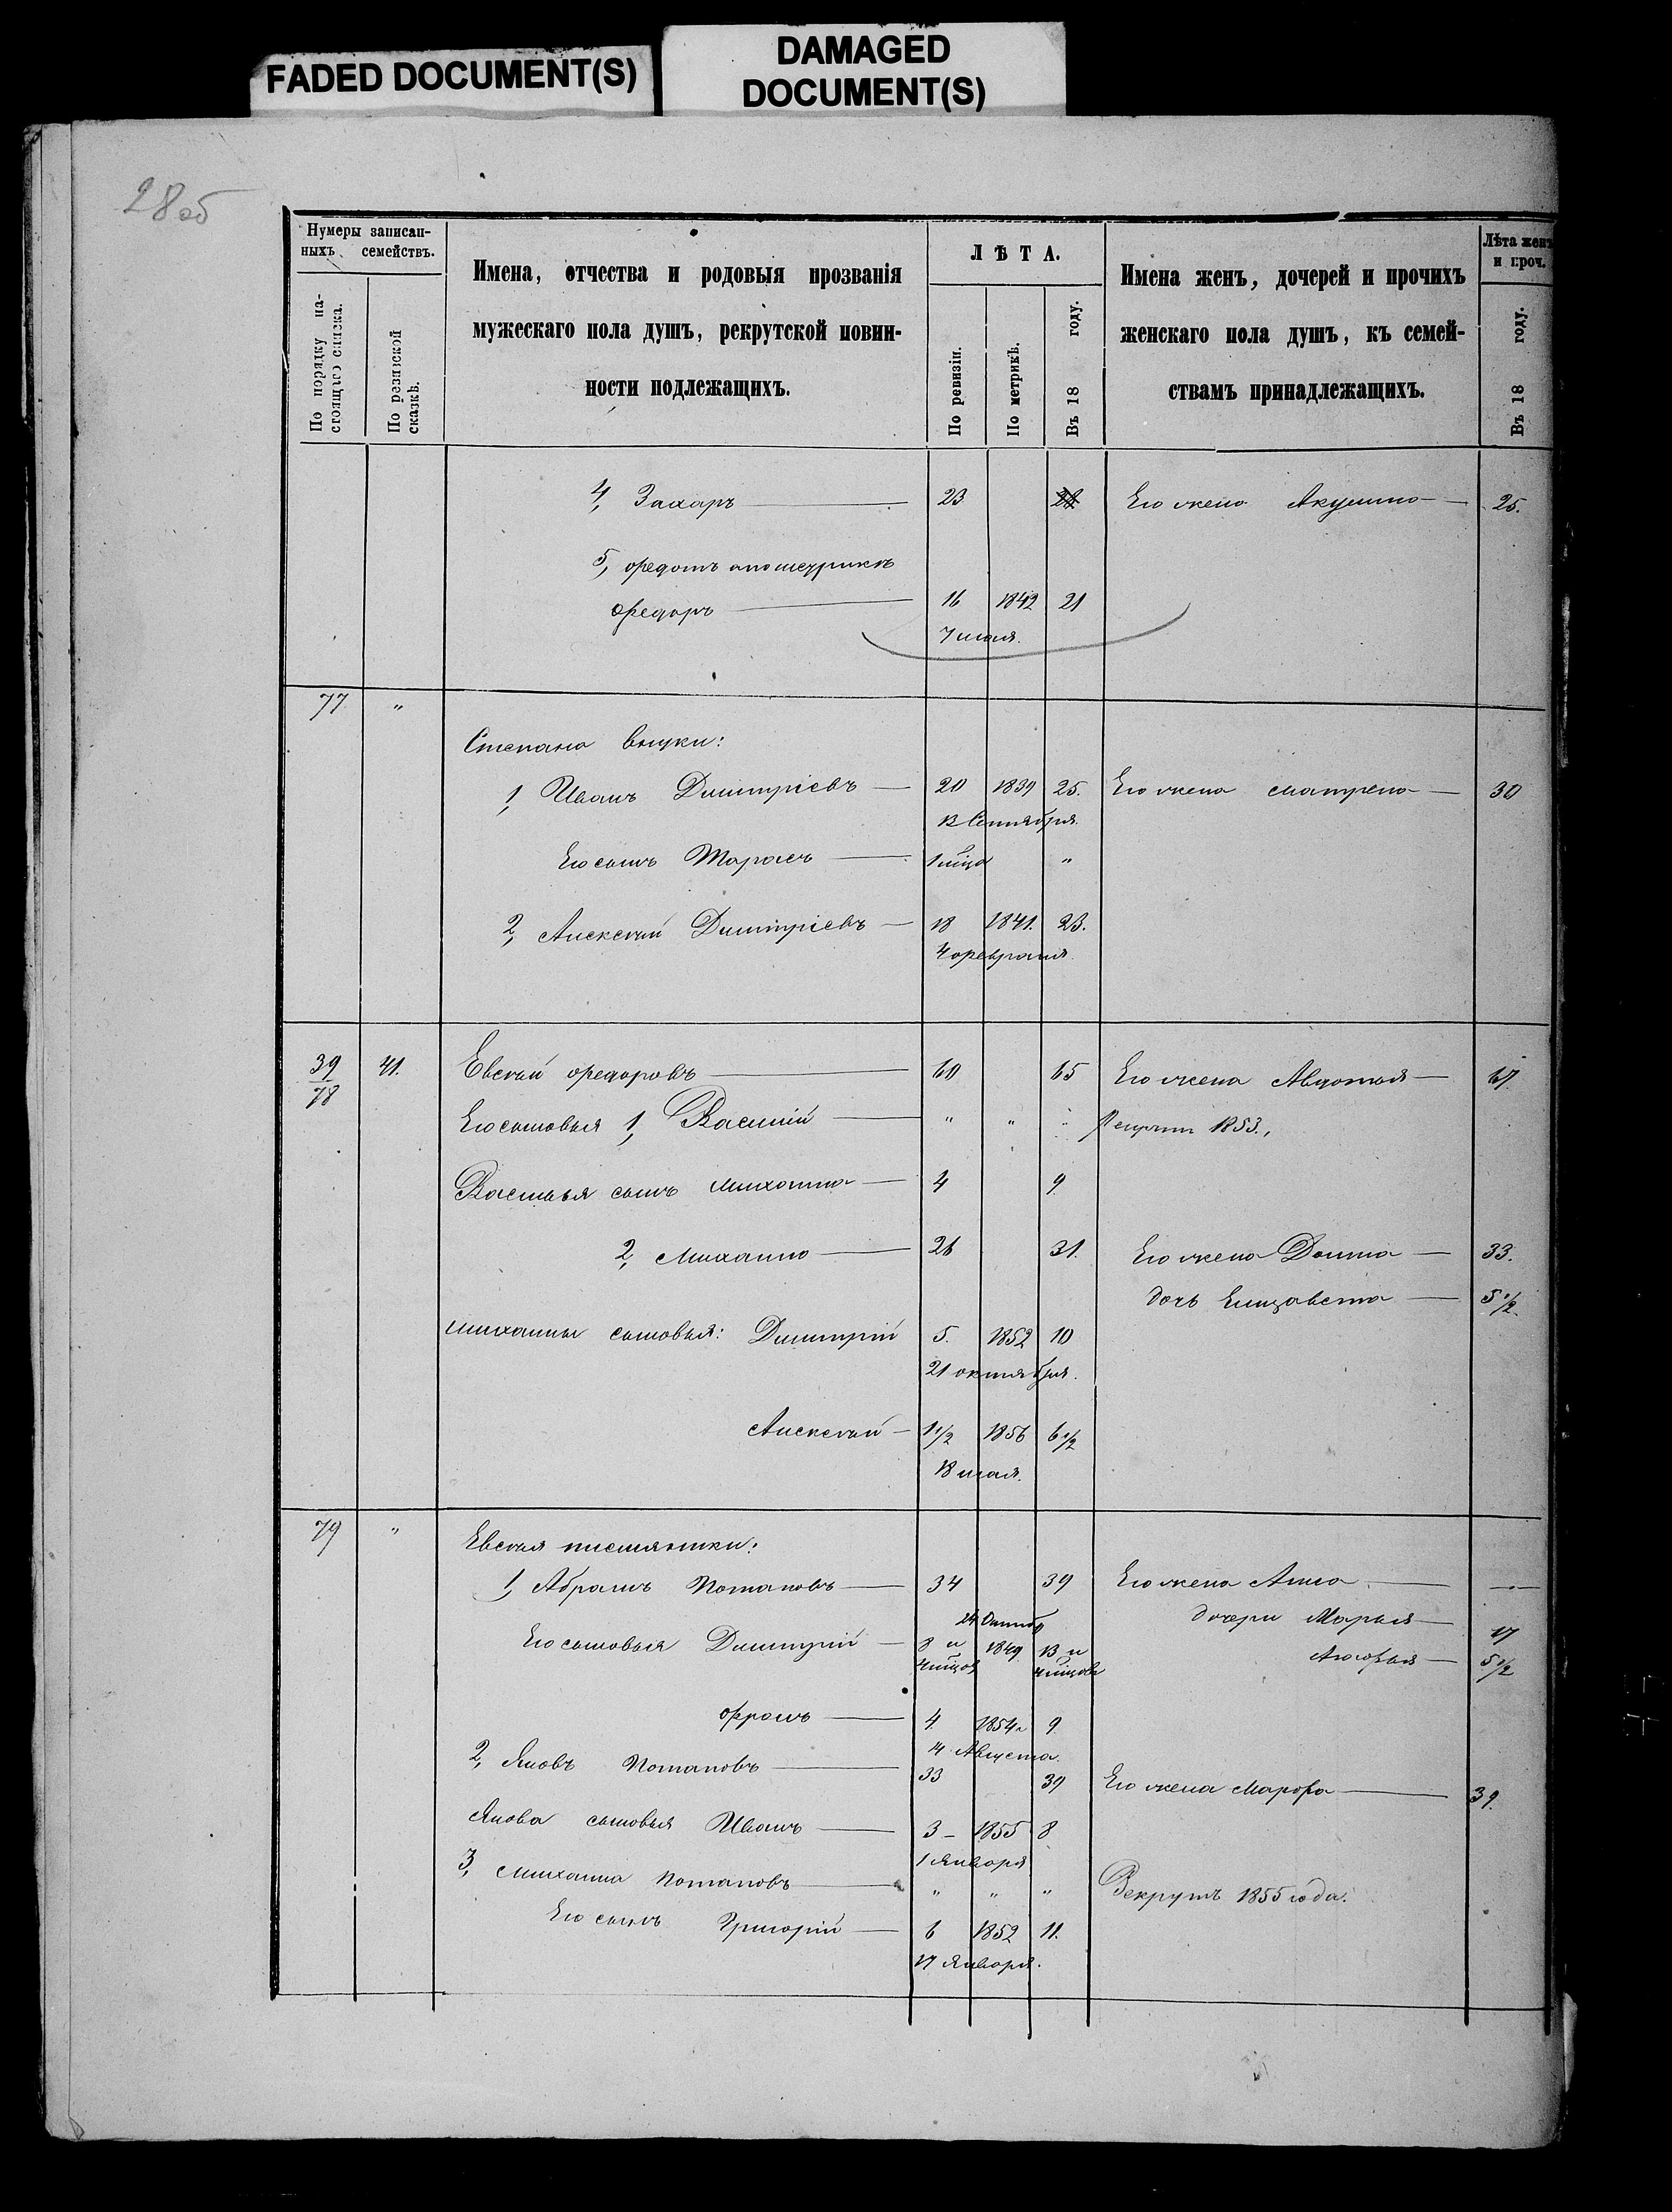 FADED DOCUMENT(S)
DAMAGED
DOCUMENT(S)
28об
Нумеры записан-
ныхъ семействъ.
По порядку на-
стоящаго списка.
По ревизской
сказкѣ.
Имена, отчества и родовыя прозванія
мужескаго пола душъ, рекрутской повин-
ности подлежащихъ.
ЛѢТА.
По ревизіи.
По метрикѣ.
Въ 18 году.
Имена женъ, дочерей и прочихъ
женскаго пола душъ, къ семей-
ствамъ принадлежащихъ.
Лѣта женъ
и проч.
Въ 18 году.
4, Захаръ 23 28 Его жена Акулина 25.
5, Федотъ а по метрикѣ
Федоръ 16 1842 21
7 мая.
77 "
Степана внуки:
1, Иванъ Дмитріевъ 20 1839 25. Его жена Матрена 30
13 Сентября.
Его сынъ Тарасъ 1 мѣца "
2, Алексѣй Дмитріевъ 18 1841. 23.
4 февраля.
39/78 41. Евсѣй Федоровъ 60 65 Его жена Авдотья 67.
Его сыновья 1, Василій " " " Рекрутъ 1853.,
Василья сынъ Михаила 4 9
2, Михаило 26 31. Его жена Домна 33.
дочь Елизавета 5 1/2.
Михаилы сыновья: Дмитрій 5. 1852 10
21 октября.
Алексѣй 1 1/2 1856 6 1/2
18 мая.
79 "
Евсѣя племянники:
1, Абрамъ Потаповъ 34 39 Его жена Анна —
24 Октяб
дочери Марья 17
Его сыновья Дмитрій 8 и 1849 13 и
4 мѣцов 4 мѣцовъ
5 1/2
Фролъ 4. 1854 г 9
14 Августа.
2, Яковъ Потаповъ 33 39 Его жена Марфа 39.
Якова сыновья Иванъ 3 – 1855 8
1 Января
3, Михаила Потаповъ " " " Рекрутъ 1855 года.
Его сынъ Григорій 6 1852 11.
17 Января.